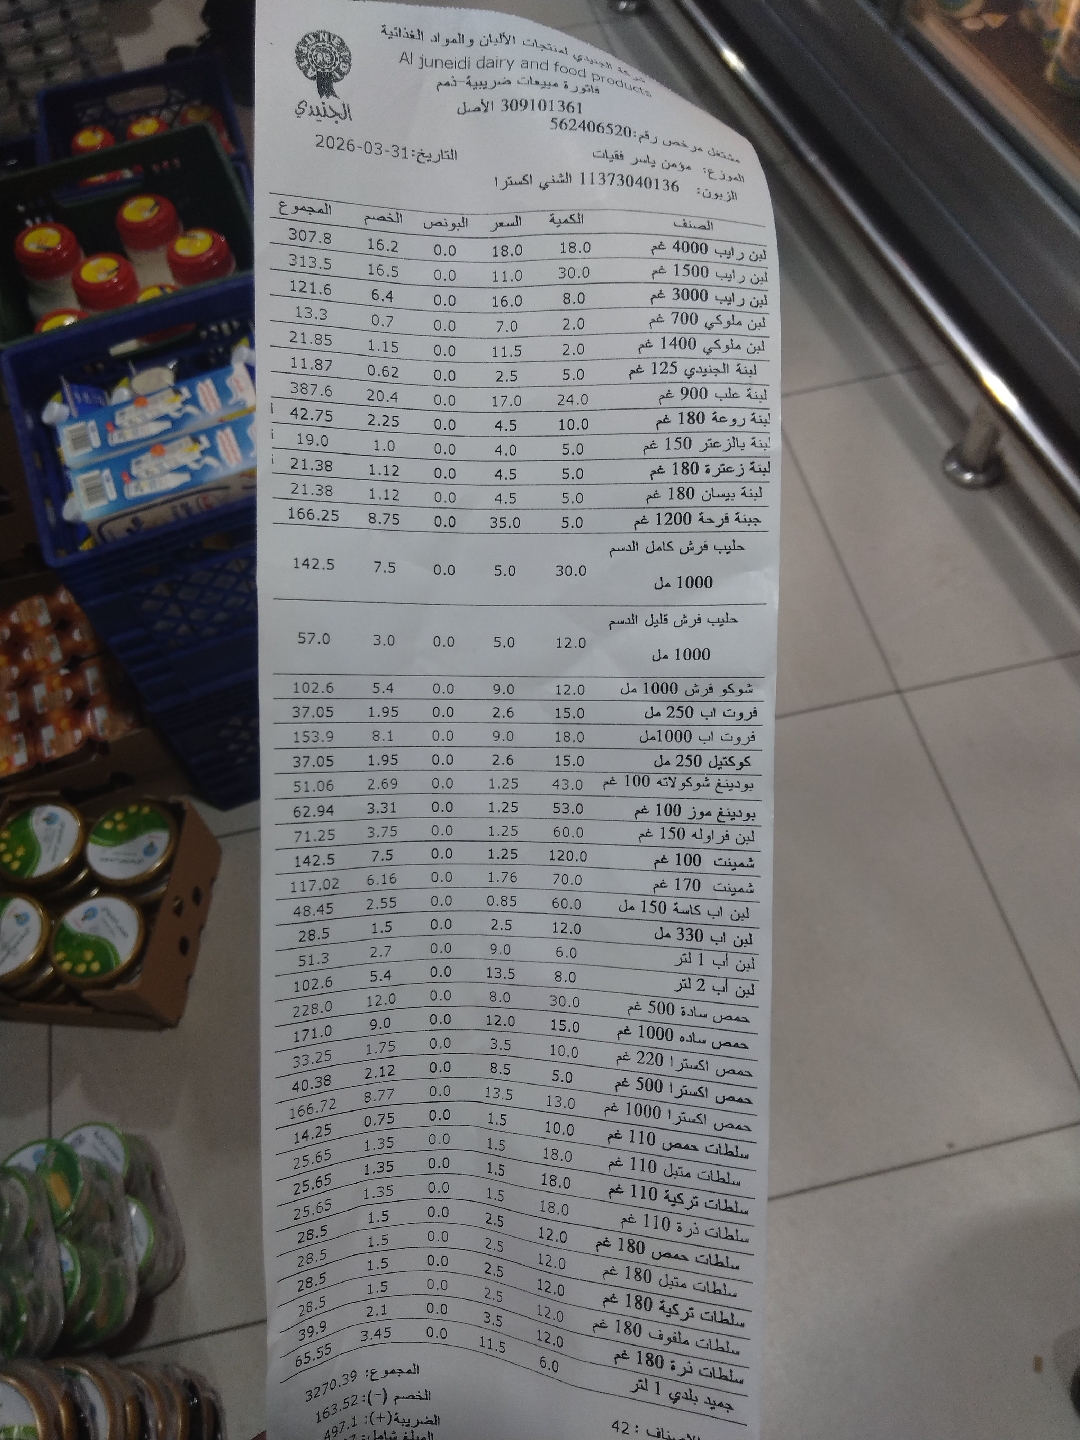 شركة الجنيدي لمنتجات الألبان والمواد الغذائية
Al juneidi dairy and food products
الجنيدي
فاتورة مبيعات ضريبية-ذمم
309101361 الأصل
مشتغل مرخص رقم:562406520
الموزع: مؤمن ياسر فقيات
التاريخ:2026-03-31
الزبون: 11373040136 الشني اكسترا
الصنف الكمية السعر البونص الخصم المجموع
لبن رايب 4000 غم 18.0 18.0 0.0 16.2 307.8
لبن رايب 1500 غم 30.0 11.0 0.0 16.5 313.5
لبن رايب 3000 غم 8.0 16.0 0.0 6.4 121.6
لبن ملوكي 700 غم 2.0 7.0 0.0 0.7 13.3
لبن ملوكي 1400 غم 2.0 11.5 0.0 1.15 21.85
لبنة الجنيدي 125 غم 5.0 2.5 0.0 0.62 11.87
لبنة علب 900 غم 24.0 17.0 0.0 20.4 387.6
لبنة روعة 180 غم 10.0 4.5 0.0 2.25 42.75
لبنة بالزعتر 150 غم 5.0 4.0 0.0 1.0 19.0
لبنة زعترة 180 غم 5.0 4.5 0.0 1.12 21.38
لبنة بيسان 180 غم 5.0 4.5 0.0 1.12 21.38
جبنة فرحة 1200 غم 5.0 35.0 0.0 8.75 166.25
حليب فرش كامل الدسم
1000 مل 30.0 5.0 0.0 7.5 142.5
حليب فرش قليل الدسم
1000 مل 12.0 5.0 0.0 3.0 57.0
شوكو فرش 1000 مل 12.0 9.0 0.0 5.4 102.6
فروت اب 250 مل 15.0 2.6 0.0 1.95 37.05
فروت اب 1000مل 18.0 9.0 0.0 8.1 153.9
كوكتيل 250 مل 15.0 2.6 0.0 1.95 37.05
بودينغ شوكولاته 100 غم 43.0 1.25 0.0 2.69 51.06
بودينغ موز 100 غم 53.0 1.25 0.0 3.31 62.94
لبن فراوله 150 غم 60.0 1.25 0.0 3.75 71.25
شمينت 100 غم 120.0 1.25 0.0 7.5 142.5
شمينت 170 غم 70.0 1.76 0.0 6.16 117.02
لبن اب كاسة 150 مل 60.0 0.85 0.0 2.55 48.45
لبن اب 330 مل 12.0 2.5 0.0 1.5 28.5
لبن أب 1 لتر 6.0 9.0 0.0 2.7 51.3
لبن أب 2 لتر 8.0 13.5 0.0 5.4 102.6
حمص سادة 500 غم 30.0 8.0 0.0 12.0 228.0
حمص ساده 1000 غم 15.0 12.0 0.0 9.0 171.0
حمص اكسترا 220 غم 10.0 3.5 0.0 1.75 33.25
حمص اكسترا 500 غم 5.0 8.5 0.0 2.12 40.38
حمص اكسترا 1000 غم 13.0 13.5 0.0 8.77 166.72
سلطات حمص 110 غم 10.0 1.5 0.0 0.75 14.25
سلطات متبل 110 غم 18.0 1.5 0.0 1.35 25.65
سلطات تركية 110 غم 18.0 1.5 0.0 1.35 25.65
سلطات ذرة 110 غم 18.0 1.5 0.0 1.35 25.65
سلطات حمص 180 غم 12.0 2.5 0.0 1.5 28.5
سلطات متبل 180 غم 12.0 2.5 0.0 1.5 28.5
سلطات تركية 180 غم 12.0 2.5 0.0 1.5 28.5
سلطات ملفوف 180 غم 12.0 2.5 0.0 1.5 28.5
سلطات ذرة 180 غم 12.0 3.5 0.0 2.1 39.9
جميد بلدي 1 لتر 6.0 11.5 0.0 3.45 65.55
المجموع: 3270.39
الخصم (-): 163.52
الضريبة(+): 497.1
المبلغ شامل:
42 :